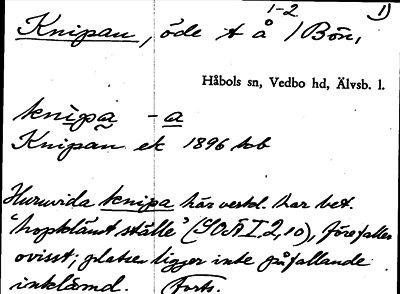 1-2 1)
Knipan, öde t å 1 Bön,
Håbols sn, Vedbo hd, Älvsb. l.
knipa -a
Knipan ek 1896 kb
Huruvida knipa här verkl. har bet.
"hopklämt ställe" (SOÄ I.2,10), förefaller
ovisst; platsen ligger inte påfallande
inklämd. Forts.